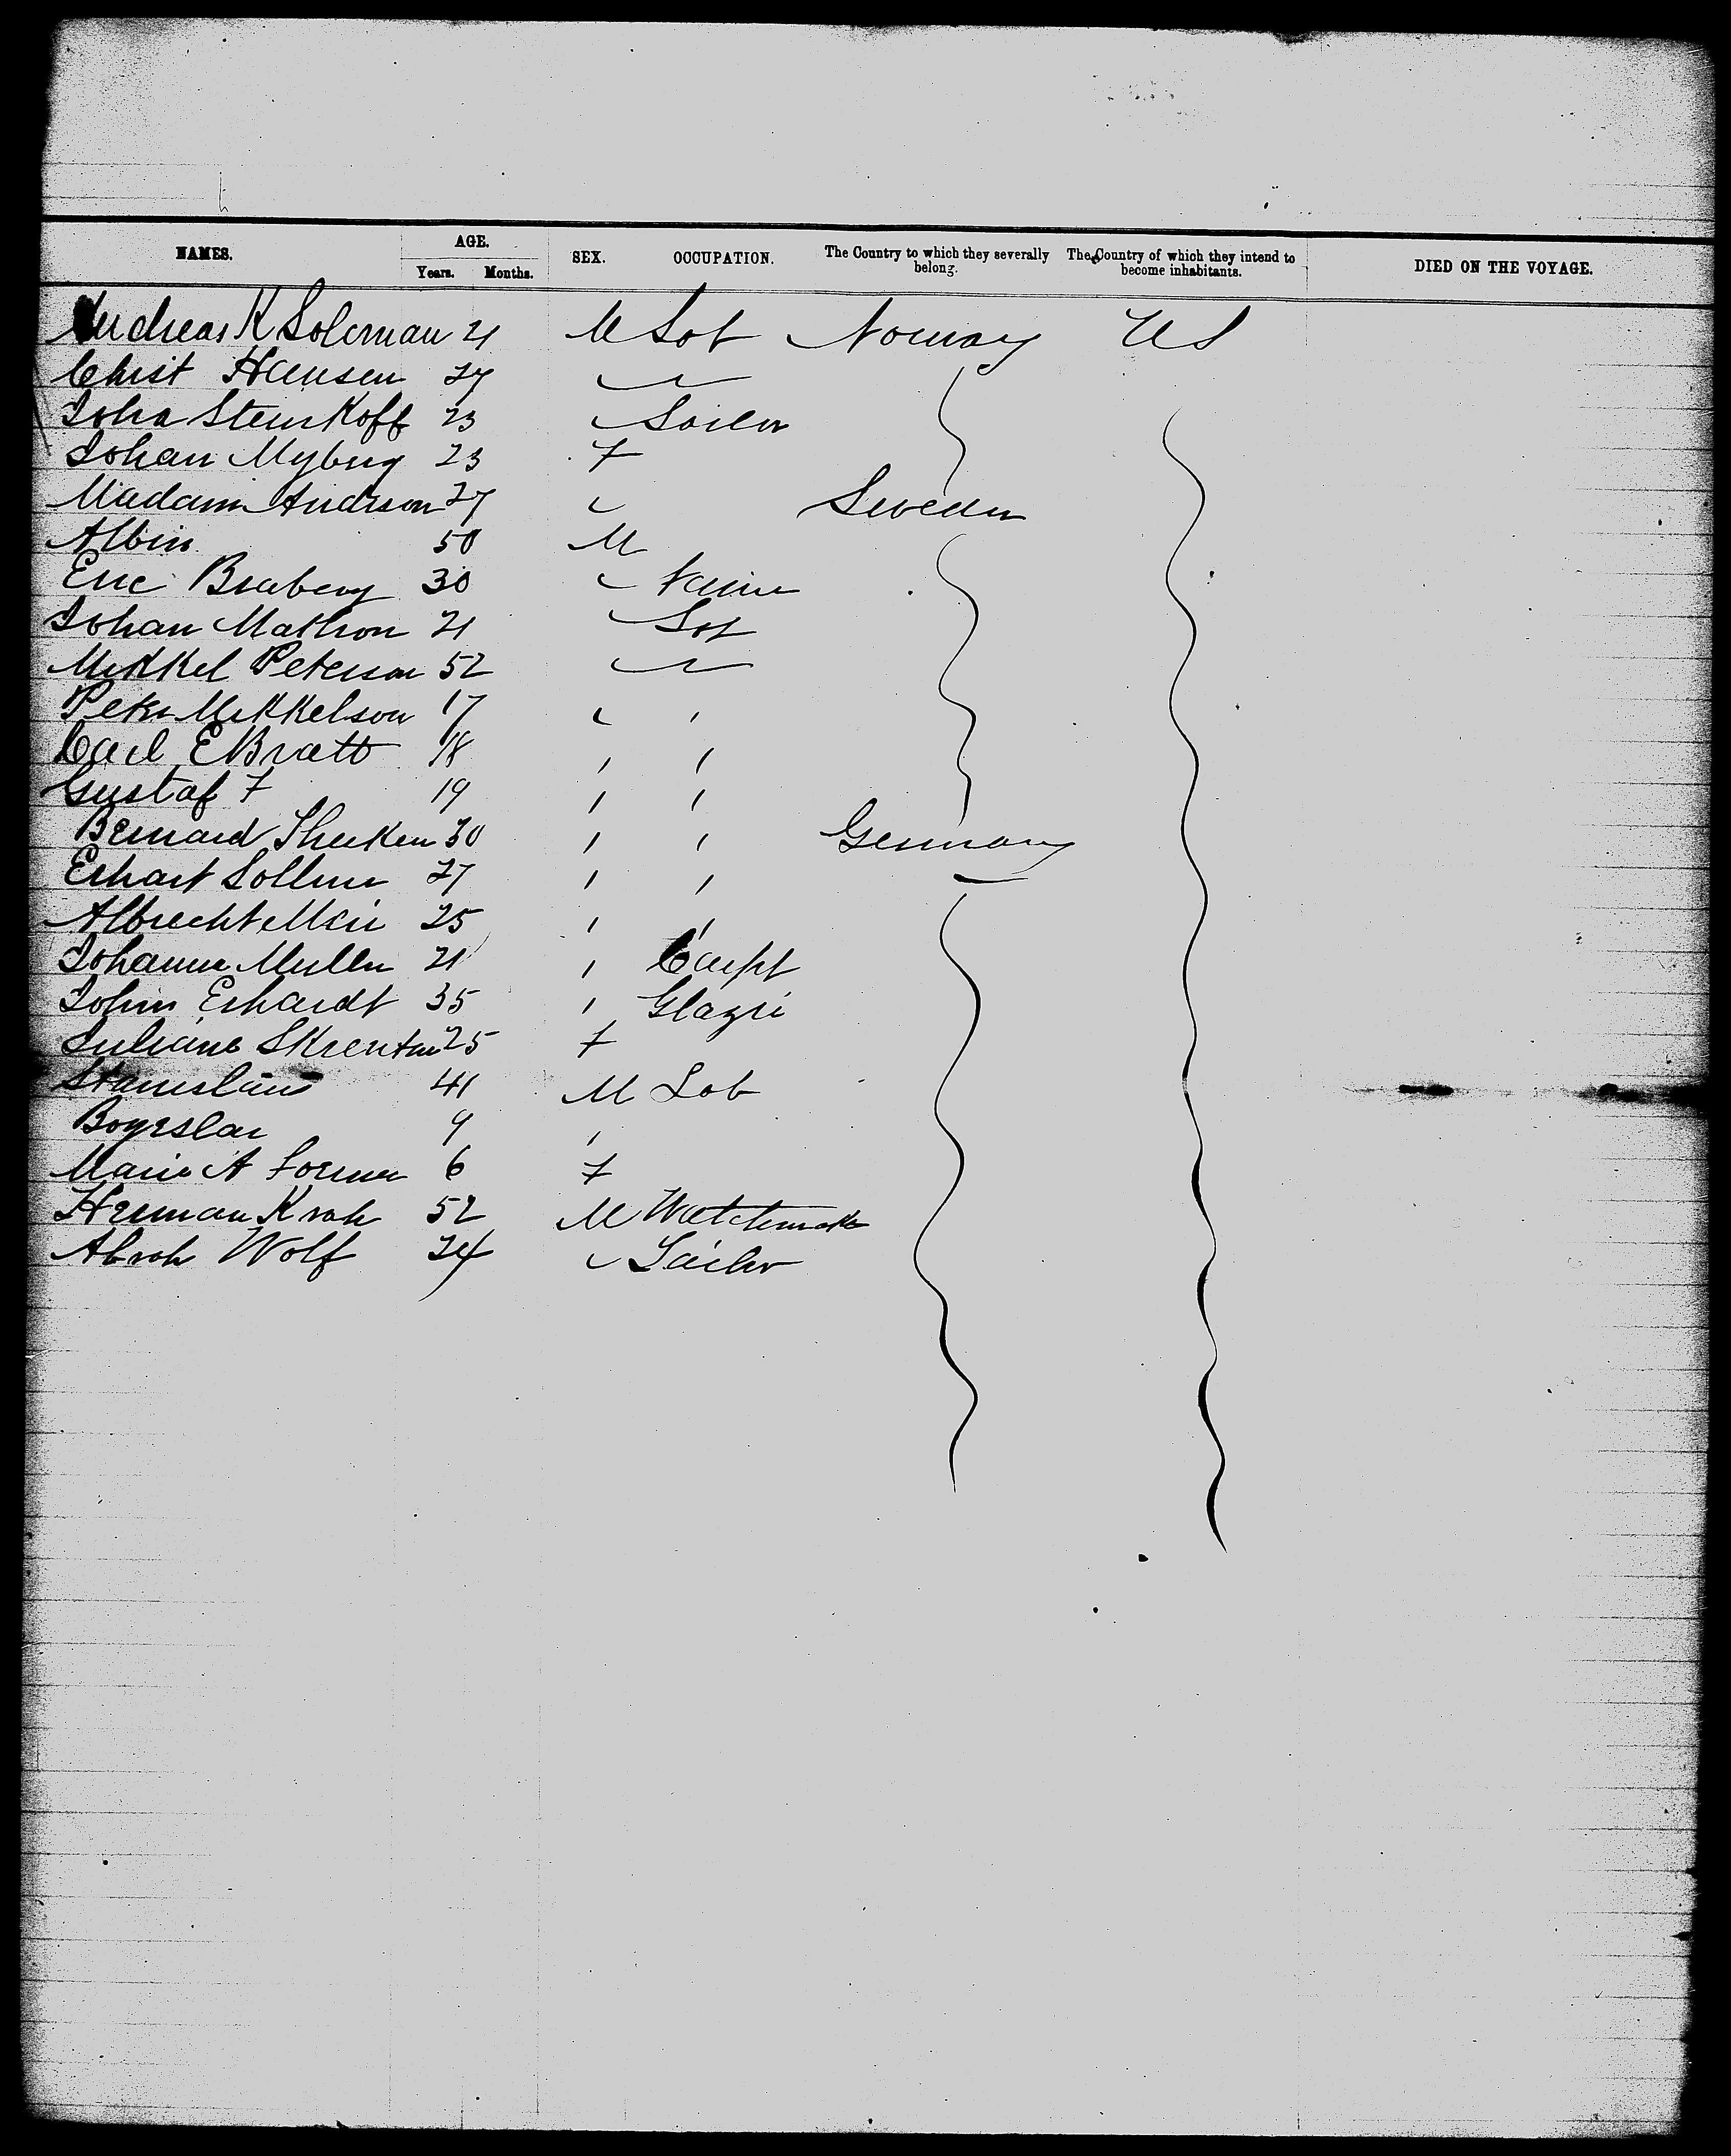 NAMES. AGE. Years. Months. SEX. OCCUPATION. The Country to which they severally belong. The Country of which they intend to become inhabitants. DIED ON THE VOYAGE.
Andreas K Soloman 21 M Lob Norway US
Christ Hansen 27
John Steinkoff 23 Sailor
Johan Myburg 23 F
Madam Anderson 27 Sweden
Albin 50 M
Eric Braberg 30
Johan Mathson 21 Lob
Mikkel Peterson 52
Peter Mikkelson 17
Carl E Bratt 18
Gustaf F 19
Bernard 30 Germany
Erhart Sollner 27
Albrecht 25
Johann Muller 21 Carpt
John Erhardt 35 Glazi
Juliane 25 F
Stanislaus 41 M Lob
9
Marie A 6 F
Herman Krah 52 M Watchmaker
Abrah Wolf 24